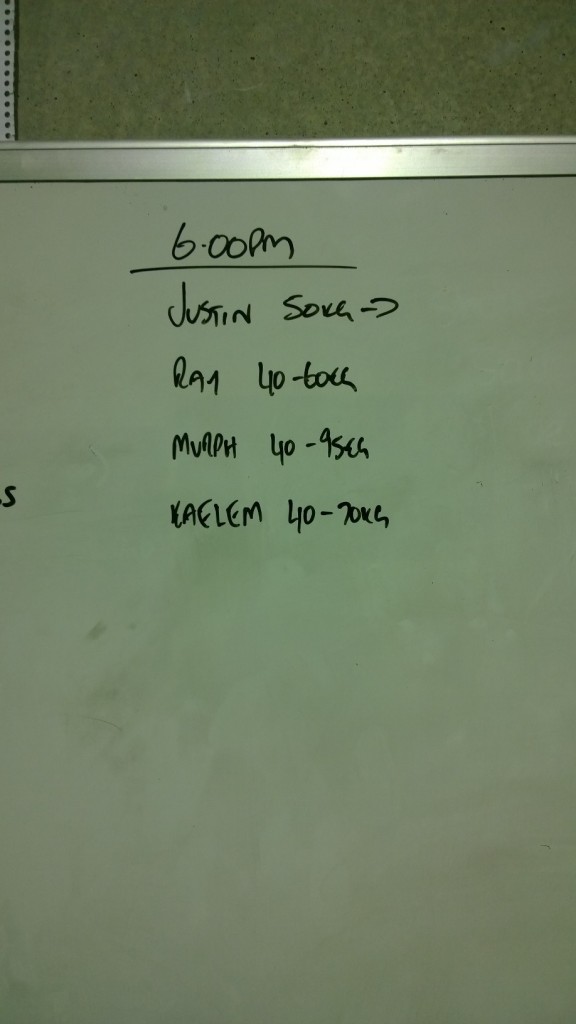 6.00PM
JUSTIN 50KG →
RAY 40-60KG
MURPH 40-95KG
KAELEM 40-70KG
S